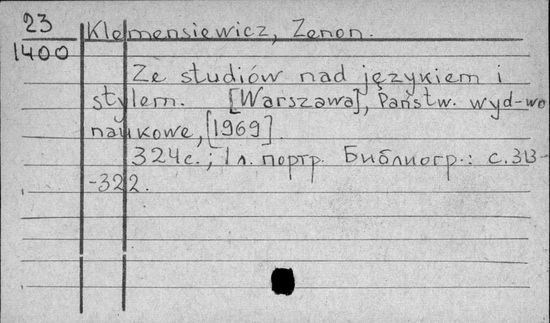 23
1400
Klemensiewicz, Zenon.
Ze studiów nad językiem i
stylem. [Warszawa], Państw. wyd-wo
naukowe, [1969].
324с.; 1 л. портр. Библиогр.: с.313-
-322.